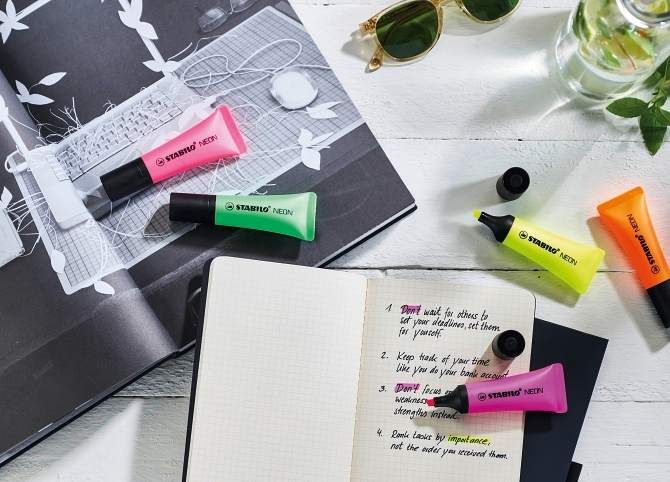 STABILO NEON
STABILO NEON
STABILO NEON
STABILO NEON
STABILO NEON
1. Don't wait for others to
set your deadlines, set them
for yourself.
2. Keep track of your time
like you do your bank account.
3. Don't focus
weakness
strengths instead.
4. Rank tasks by importance,
not the order you received them.